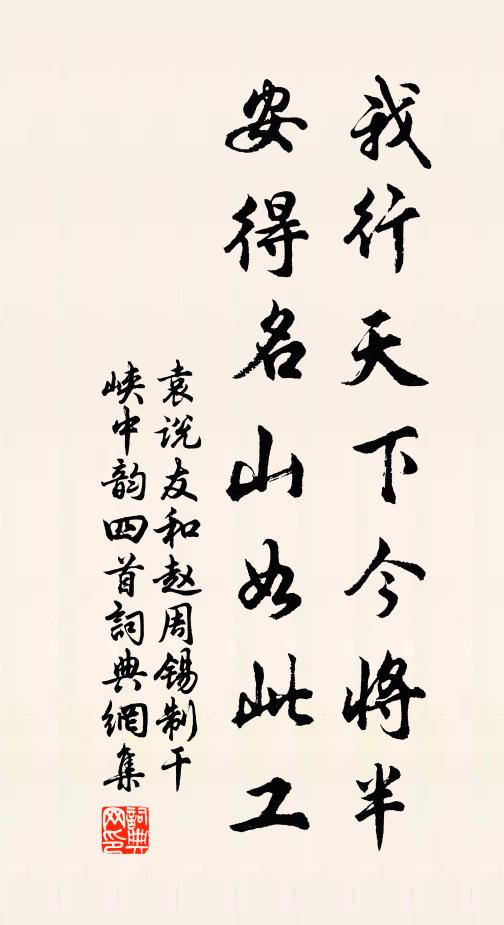 我行天下今将半
安得名山如此工
袁说友和赵周锡制干
峡中韵四首詞典網集
詞典网印